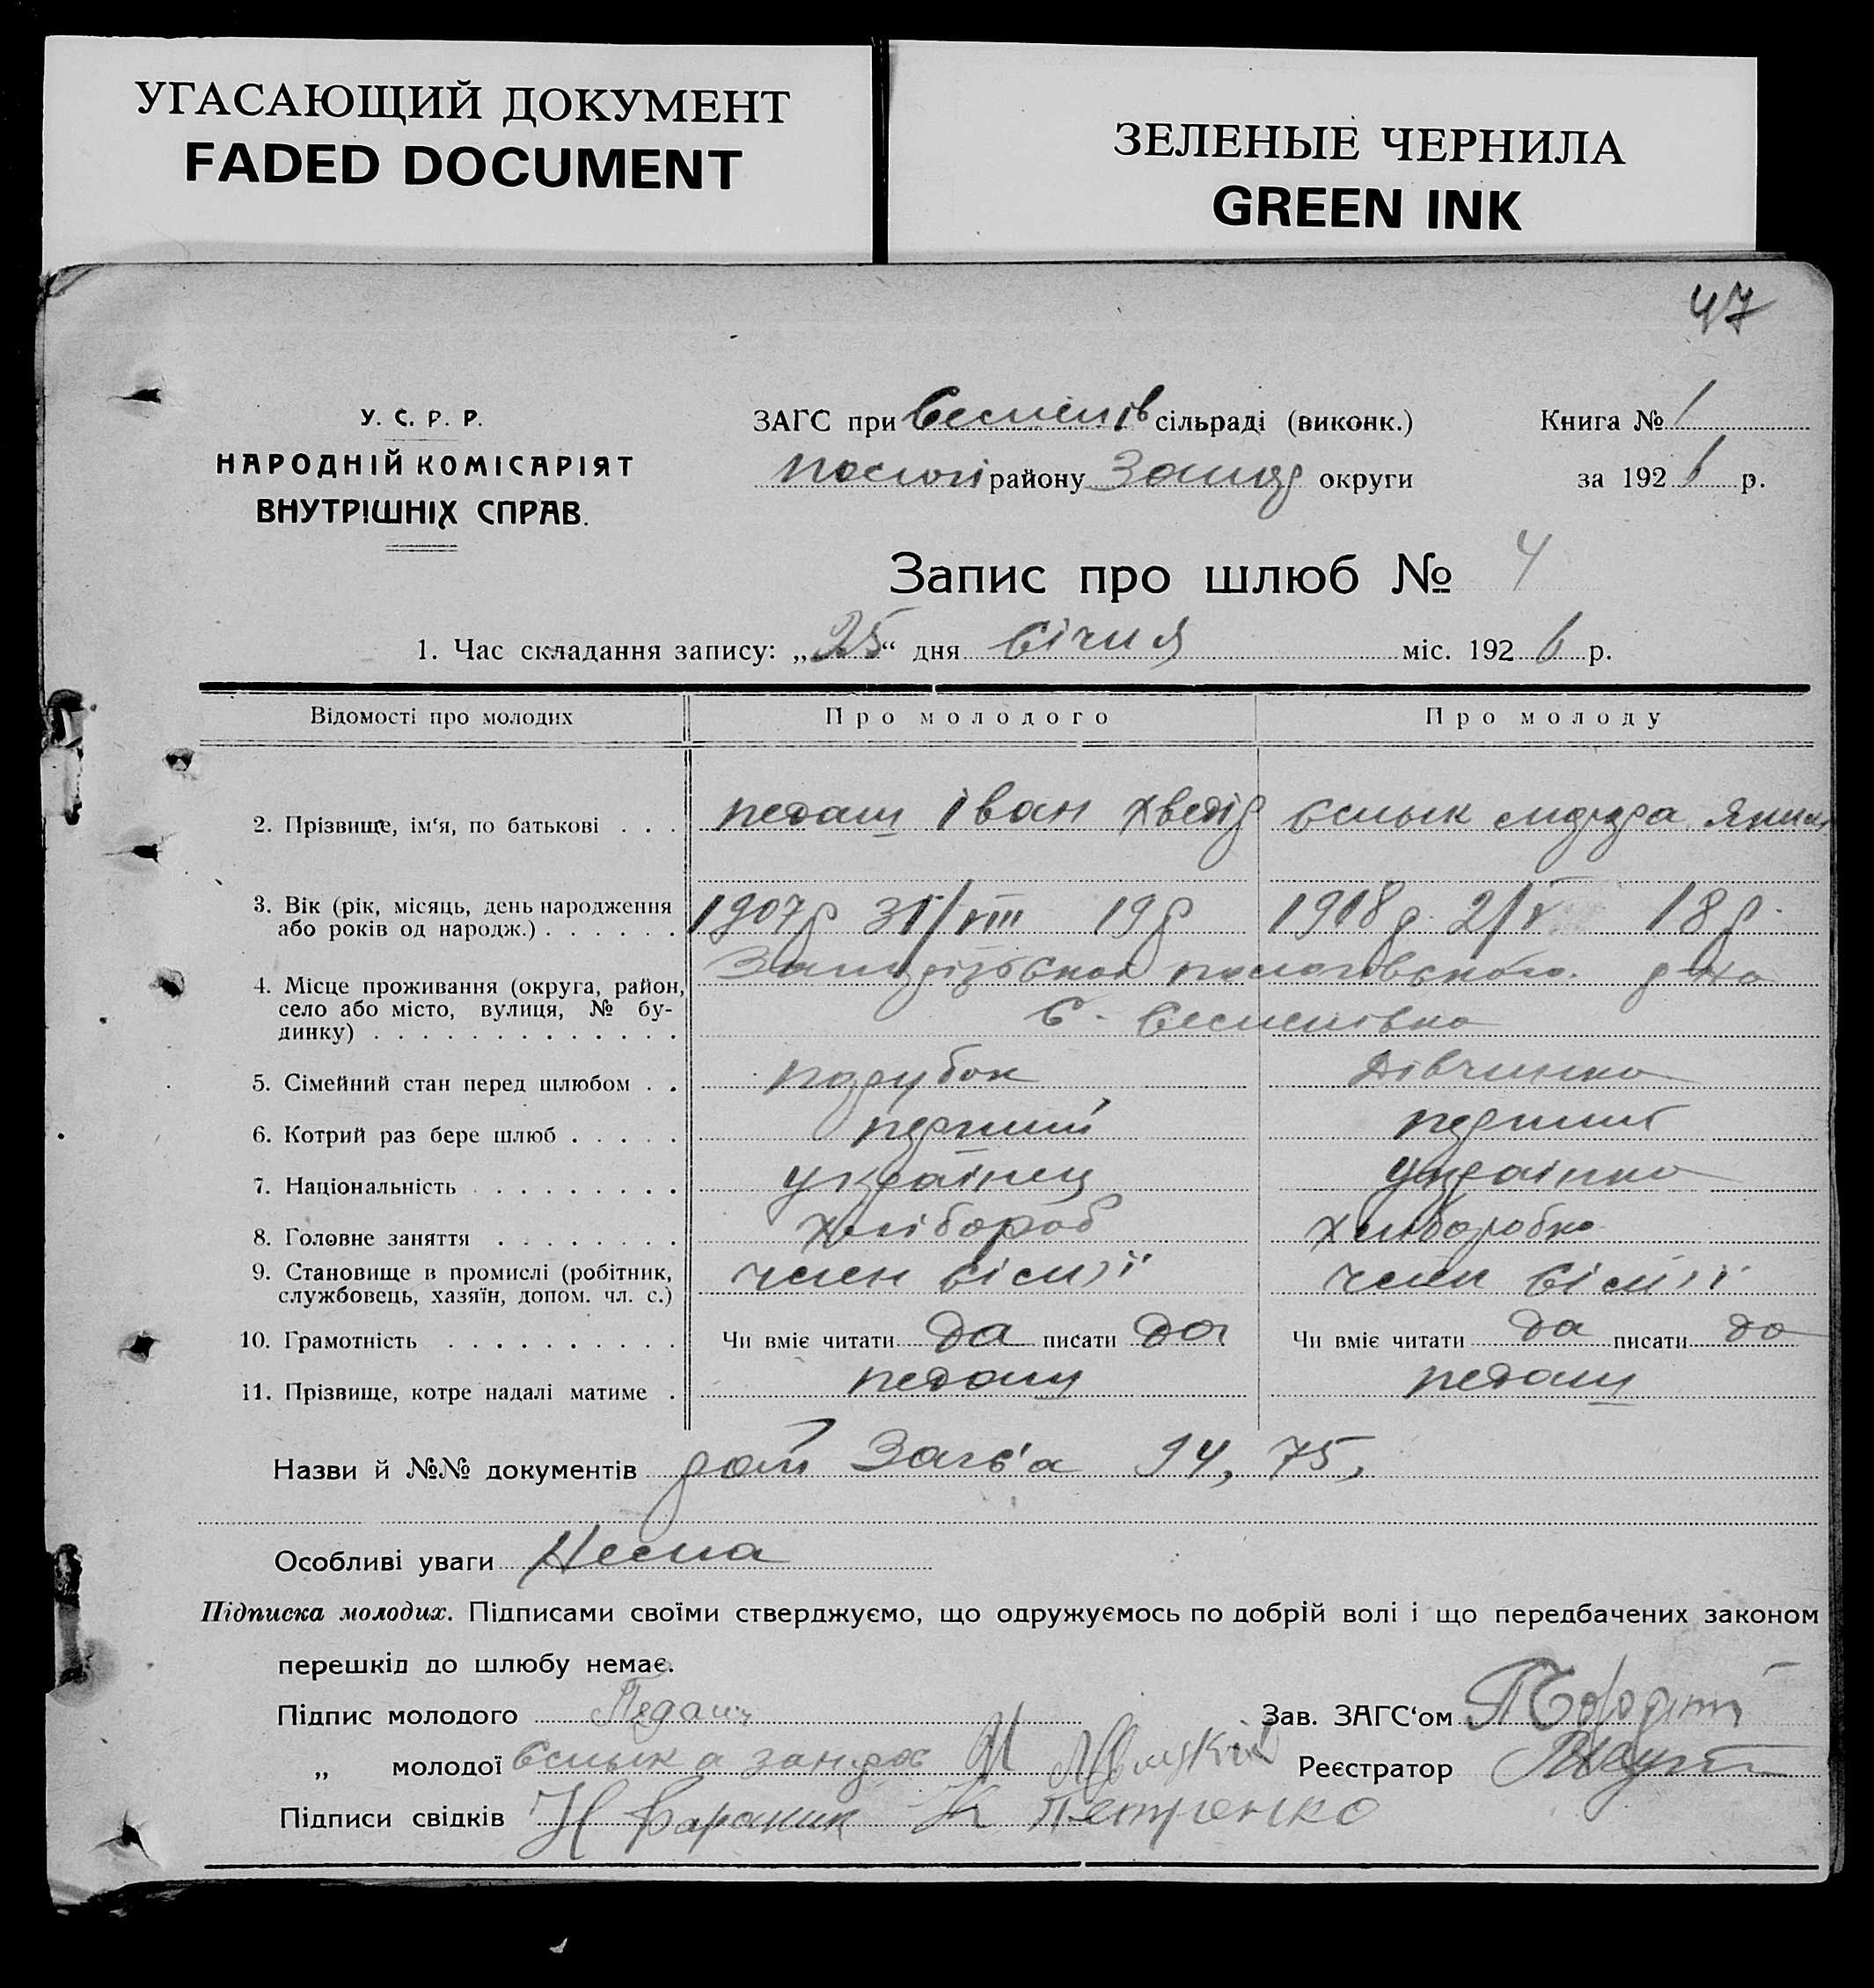 УГАСАЮЩИЙ ДОКУМЕНТ
FADED DOCUMENT
ЗЕЛЕНЫЕ ЧЕРНИЛА
GREEN INK
47
У. С. Р. Р.
НАРОДНІЙ КОМІСАРІЯТ
ВНУТРІШНІХ СПРАВ.
ЗАГС при сільраді (виконк.) Книга № 1
району округи за 1926 р.
Запис про шлюб № 4
1. Час складання запису: „25“ дня Січня міс. 1926 р.
Відомості про молодих Про молодого Про молоду
2. Прізвище, ім'я, по батькові . . . педаш Іван хведір
3. Вік (рік, місяць, день народження
або років од народж.) . . . . . . 1907р 31/VIII 19р 1908р. 2/V 18р.
4. Місце проживання (округа, район,
село або місто, вулиця, № бу-
динку) . . . . . . . . . . . . . с.
5. Сімейний стан перед шлюбом . . парубок Дівчинка
6. Котрий раз бере шлюб . . . . . перший перший
7. Національність . . . . . . . . . українец українка
8. Головне заняття . . . . . . . . хлібороб хліборобка
9. Становище в промислі (робітник,
службовець, хазяїн, допом. чл. с.) член сім'ї член сім'ї
10. Грамотність . . . . . . . . . . Чи вміє читати да писати да Чи вміє читати да писати да
11. Прізвище, котре надалі матиме . педаш педаш
Назви й №№ документів Загс'а 94, 75,
Особливі уваги Нема
Підписка молодих. Підписами своїми стверджуємо, що одружуємось по добрій волі і що передбачених законом
перешкід до шлюбу немає.
Підпис молодого Педаш Зав. ЗАГС‘ом
„ молодої Реєстратор
Підписи свідків Н Бараник Петренко